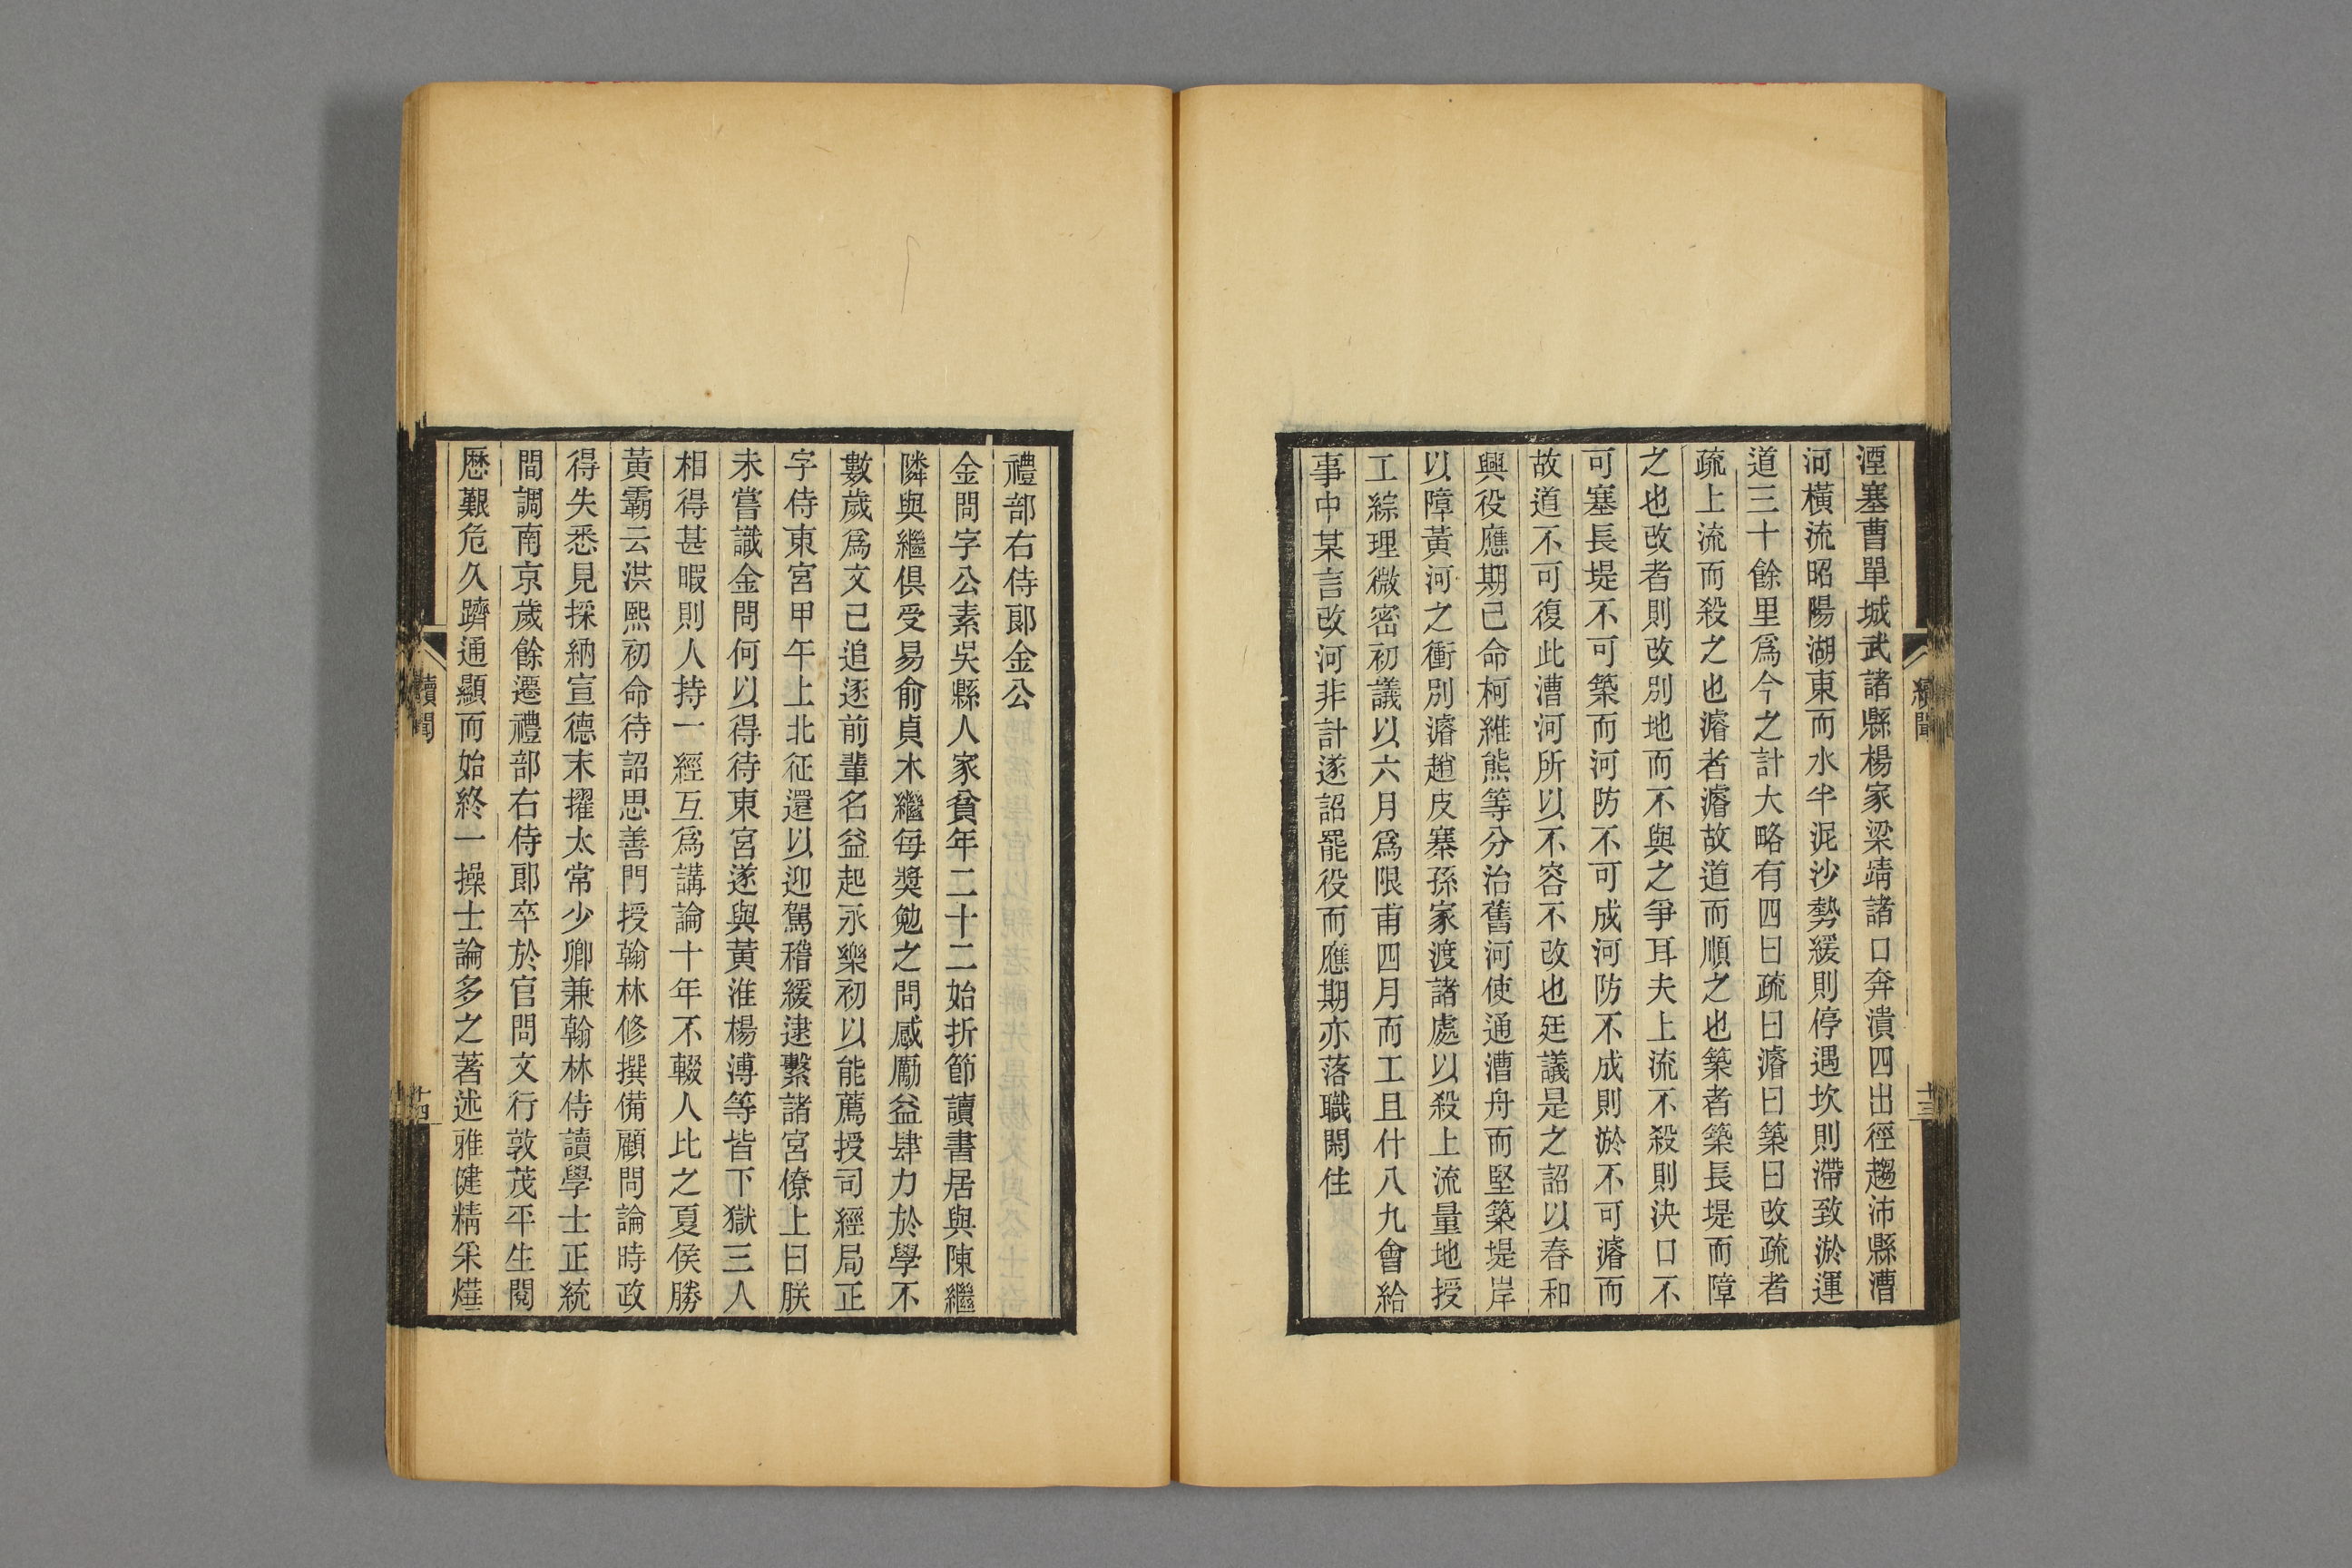 湮塞曹單城武諸縣楊家梁靖諸口奔潰四出徑趨沛縣漕
河橫流昭陽湖東而水半泥沙勢緩則停遇坎則滯致淤運
道三十餘里爲今之計大略有四曰疏曰濬曰築曰改疏者
疏上流而殺之也濬者濬故道而順之也築者築長堤而障
之也改者則改別地而不與之爭耳夫上流不殺則決口不
可塞長堤不可築而河防不可成河防不成則淤不可濬而
故道不可復此漕河所以不容不改也廷議是之詔以春和
興役應期已命柯維熊等分治舊河使通漕舟而堅築堤岸
以障黃河之衝別濬趙皮寨孫家渡諸處以殺上流量地授
工綜理微密初議以六月爲限甫四月而工且什八九會給
事中某言改河非計遂詔罷役而應期亦落職閑住
續聞
十三
禮部右侍郎金公
金問字公素吳縣人家貧年二十二始折節讀書居與陳繼
隣與繼俱受易俞貞木繼每獎勉之問感勵益肆力於學不
數歲爲文已追逐前輩名益起永樂初以能薦授司經局正
字侍東宮甲午上北征還以迎駕稽緩逮繫諸宮僚上曰朕
未嘗識金問何以得待東宮遂與黃淮楊溥等皆下獄三人
相得甚暇則人持一經互爲講論十年不輟人比之夏侯勝
黃霸云洪熙初命待詔思善門授翰林修撰備顧問論時政
得失悉見採納宣德末擢太常少卿兼翰林侍讀學士正統
間調南京歲餘遷禮部右侍郎卒於官問文行敦茂平生閱
歷艱危久躋通顯而始終一操士論多之著述雅健精采燁
續聞
十四